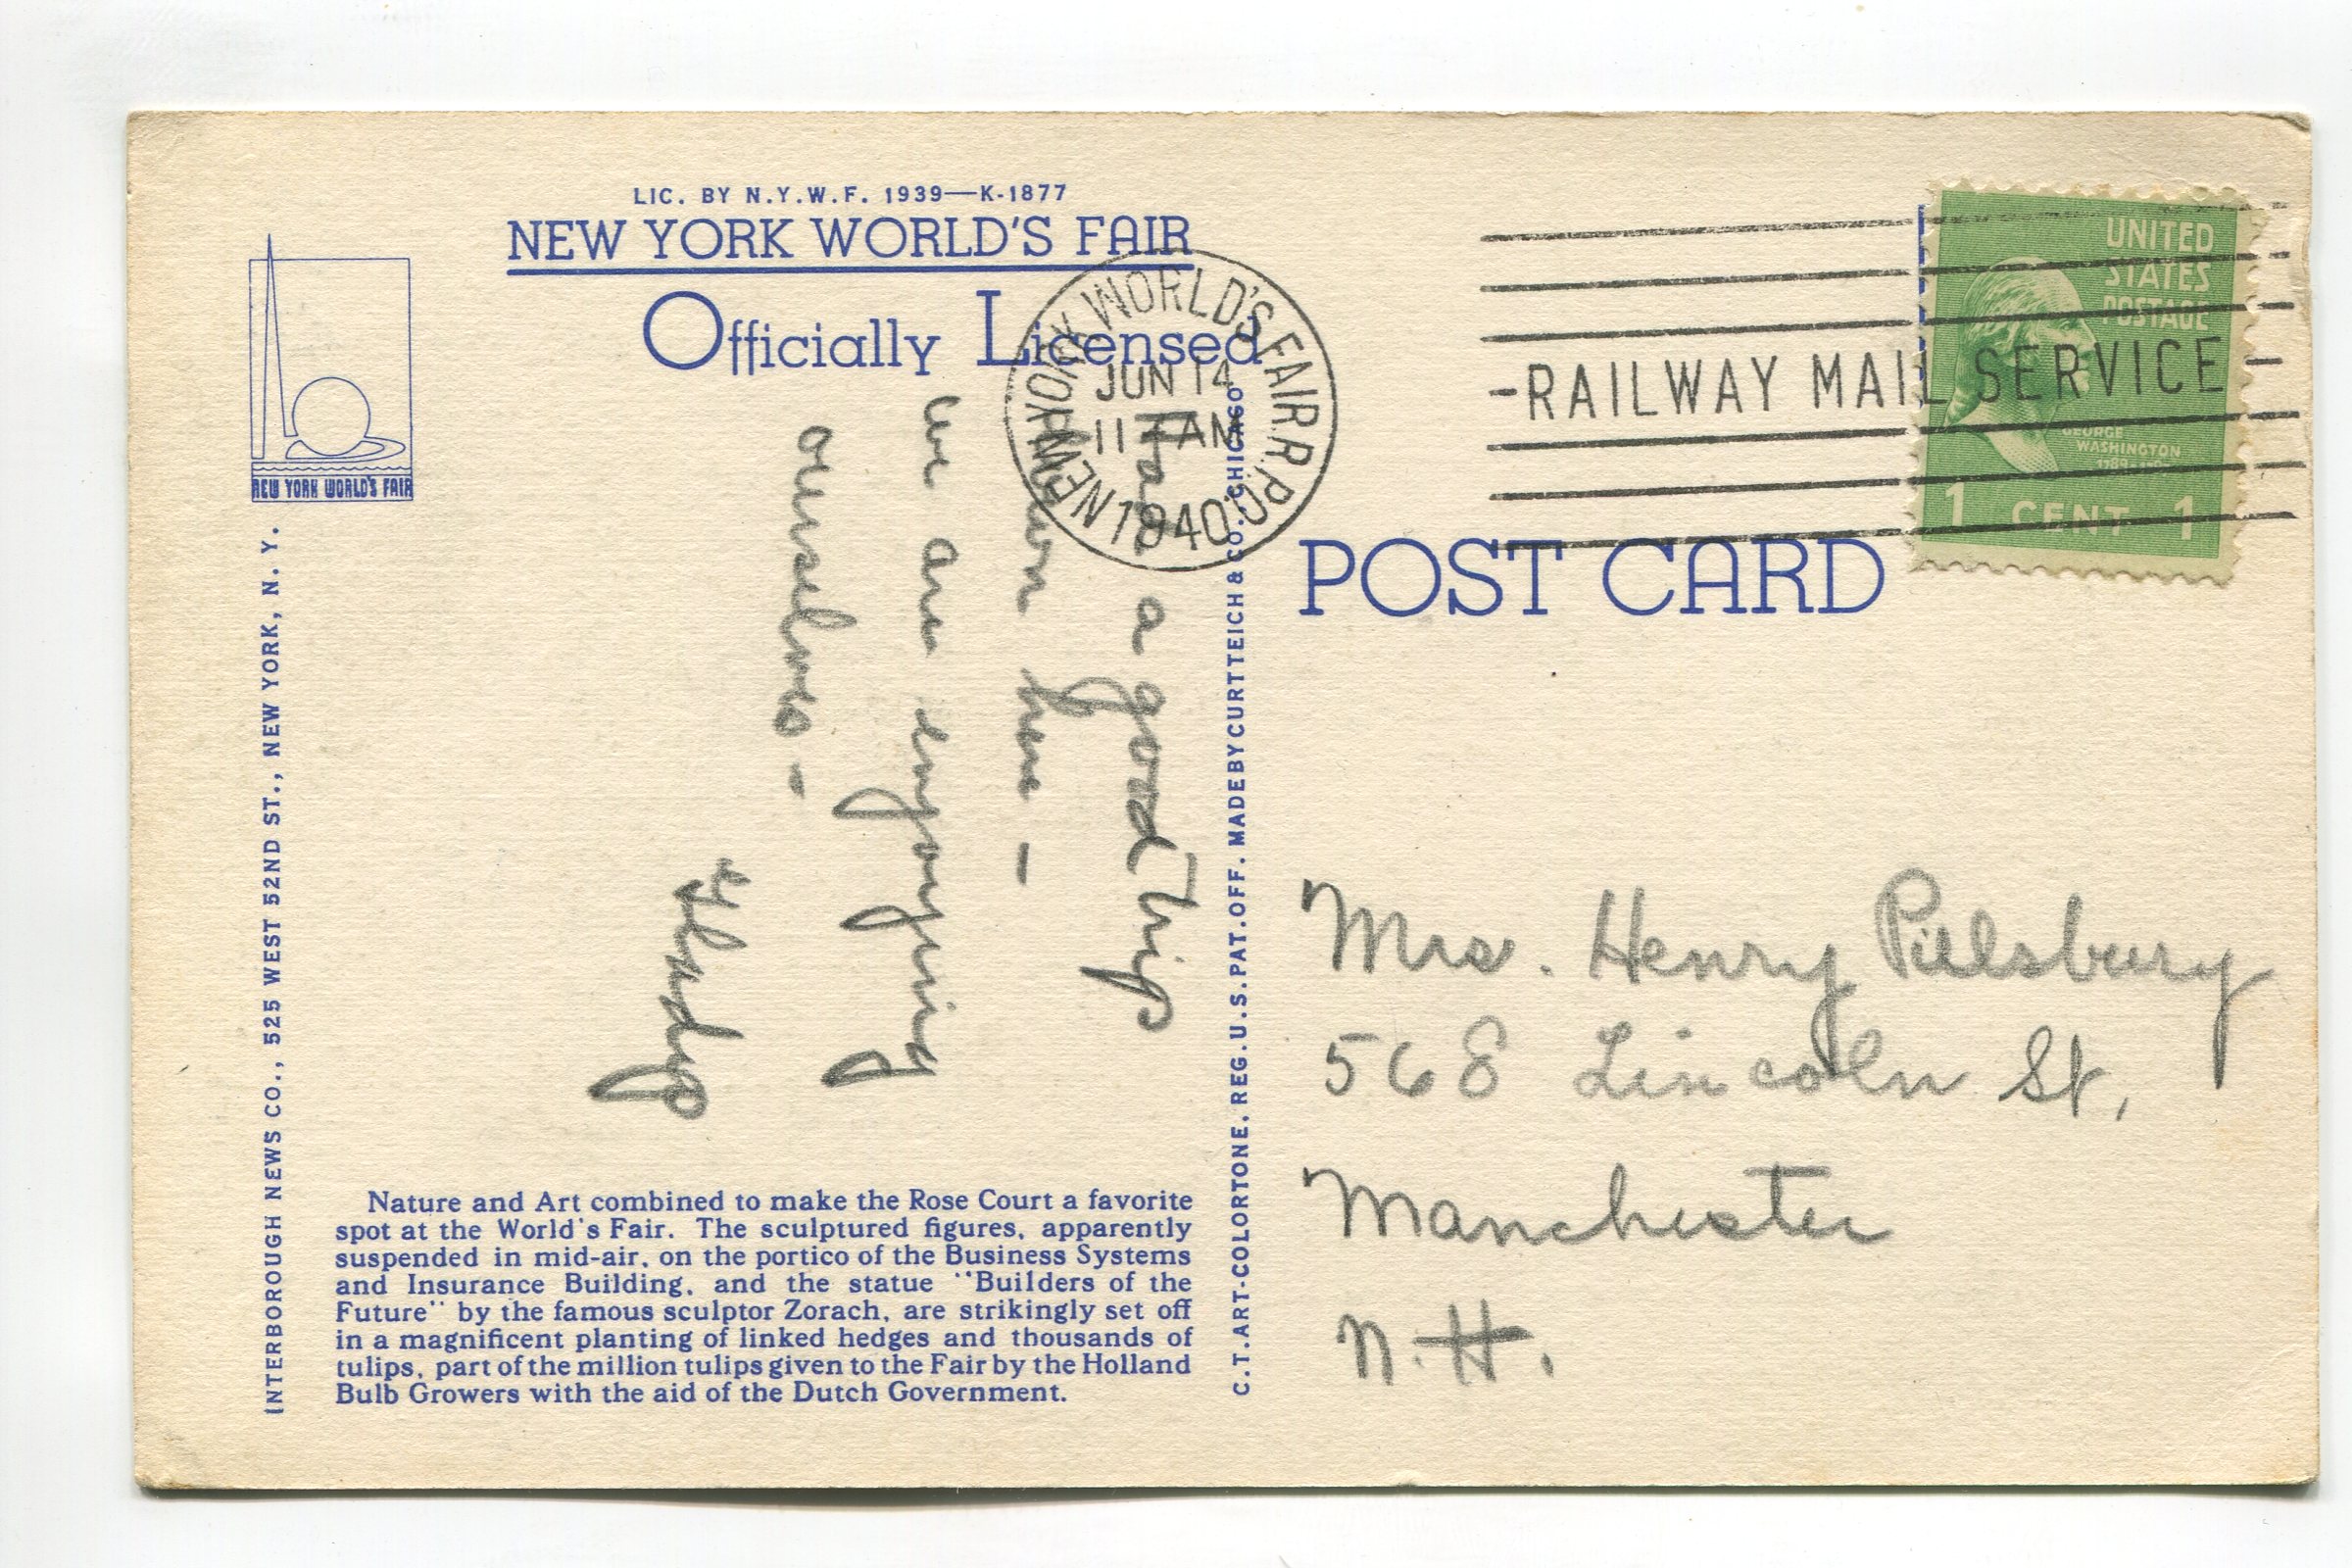 LIC. BY N.Y.W.F. 1939—K-1877
NEW YORK WORLD'S FAIR
Officially Licensed
NEW YORK WORLD'S FAIR
INTERBOROUGH NEWS CO., 525 WEST 52ND ST., NEW YORK, N. Y.
Had a good trip
down here -
We are enjoying
ourselves -
Gladys
Nature and Art combined to make the Rose Court a favorite
spot at the World's Fair. The sculptured figures, apparently
suspended in mid-air, on the portico of the Business Systems
and Insurance Building, and the statue "Builders of the
Future" by the famous sculptor Zorach, are strikingly set off
in a magnificent planting of linked hedges and thousands of
tulips, part of the million tulips given to the Fair by the Holland
Bulb Growers with the aid of the Dutch Government.
C.T. ART-COLORTONE. REG. U.S. PAT. OFF. MADE BY CURT TEICH & CO., CHICAGO
NEW YORK WORLD'S FAIR R.P.O.
JUN 14
11 AM
1940
-RAILWAY MAIL SERVICE-
UNITED
STATES
POSTAGE
GEORGE
WASHINGTON
1 CENT 1
POST CARD
Mrs. Henry Pillsbury
568 Lincoln St,
Manchester
N.H.